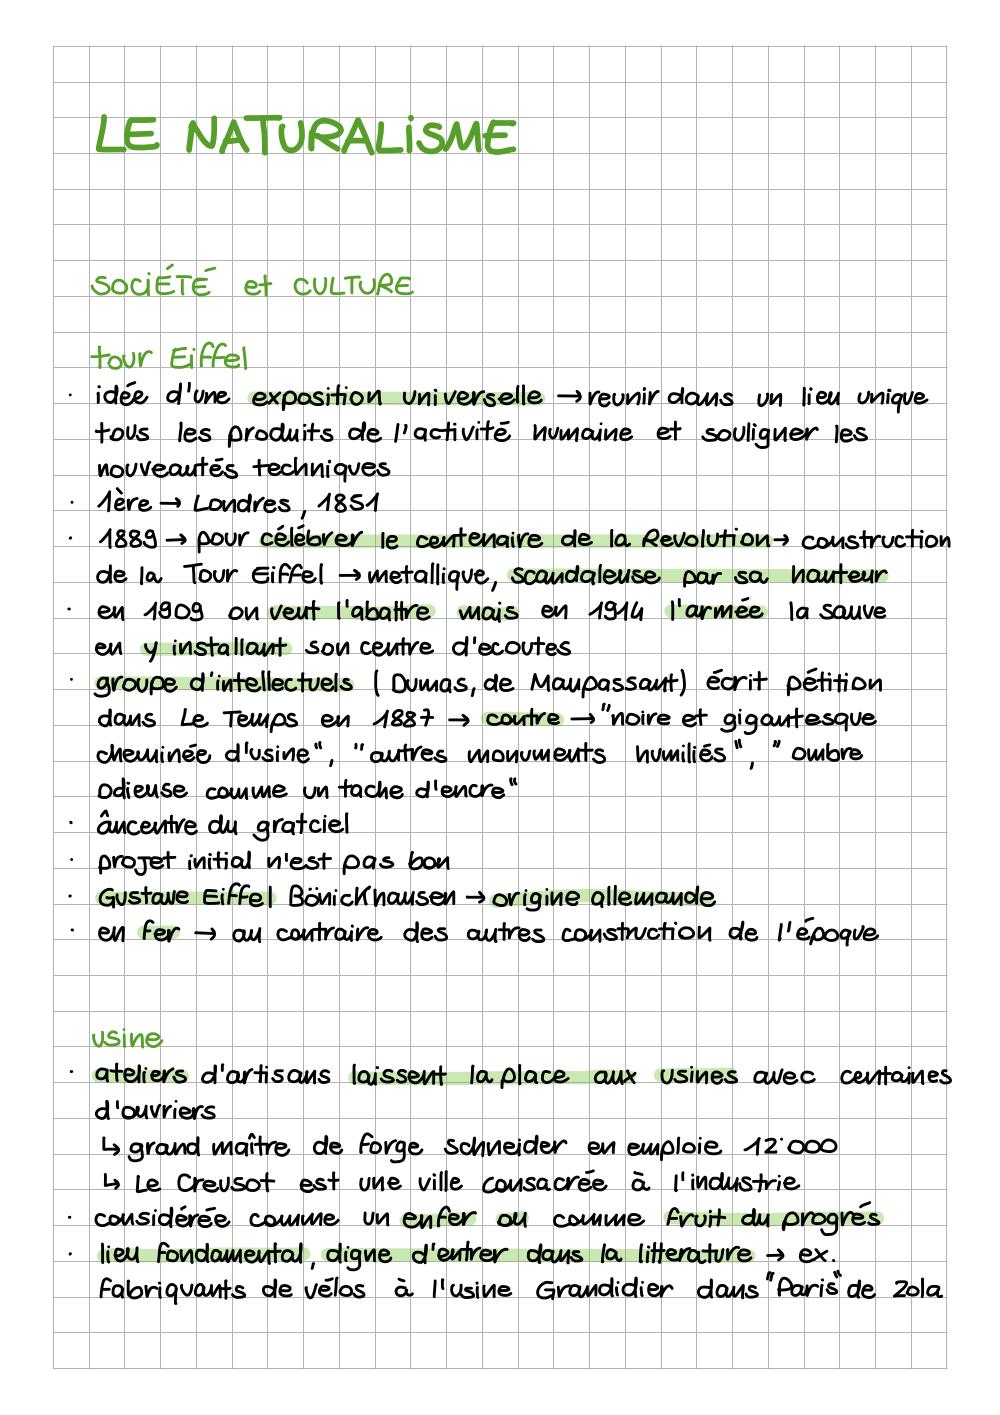 LE NATURALiSME
SOCiÉTÉ et CULTURE
tour Eiffel
· idée d'une exposition universelle → reunir dans un lieu unique
tous les produits de l'activité humaine et souligner les
nouveautés techniques
· 1ère → Londres, 1851
· 1889 → pour célébrer le centenaire de la Revolution → construction
de la Tour Eiffel → metallique, scandaleuse par sa hauteur
· en 1909 on veut l'abattre mais en 1914 l'armée la sauve
en y installant son centre d'ecoutes
· groupe d'intellectuels (Dumas, de Maupassant) écrit pétition
dans Le Temps en 1887 → contre → "noire et gigantesque
cheminée d'usine", "autres monuments humiliés", "ombre
odieuse comme un tache d'encre"
· âncentre du gratciel
· projet initial n'est pas bon
· Gustave Eiffel BönicKhausen → origine allemande
· en fer → au contraire des autres construction de l'époque
usine
· ateliers d'artisans laissent la place aux usines avec centaines
d'ouvriers
↳ grand maître de forge Schneider en emploie 12'000
↳ Le Creusot est une ville consacrée à l'industrie
· considérée comme un enfer ou comme fruit du progrés
· lieu fondamental, digne d'entrer dans la litterature → ex.
fabriquants de vélos à l'usine Grandidier dans "Paris" de Zola